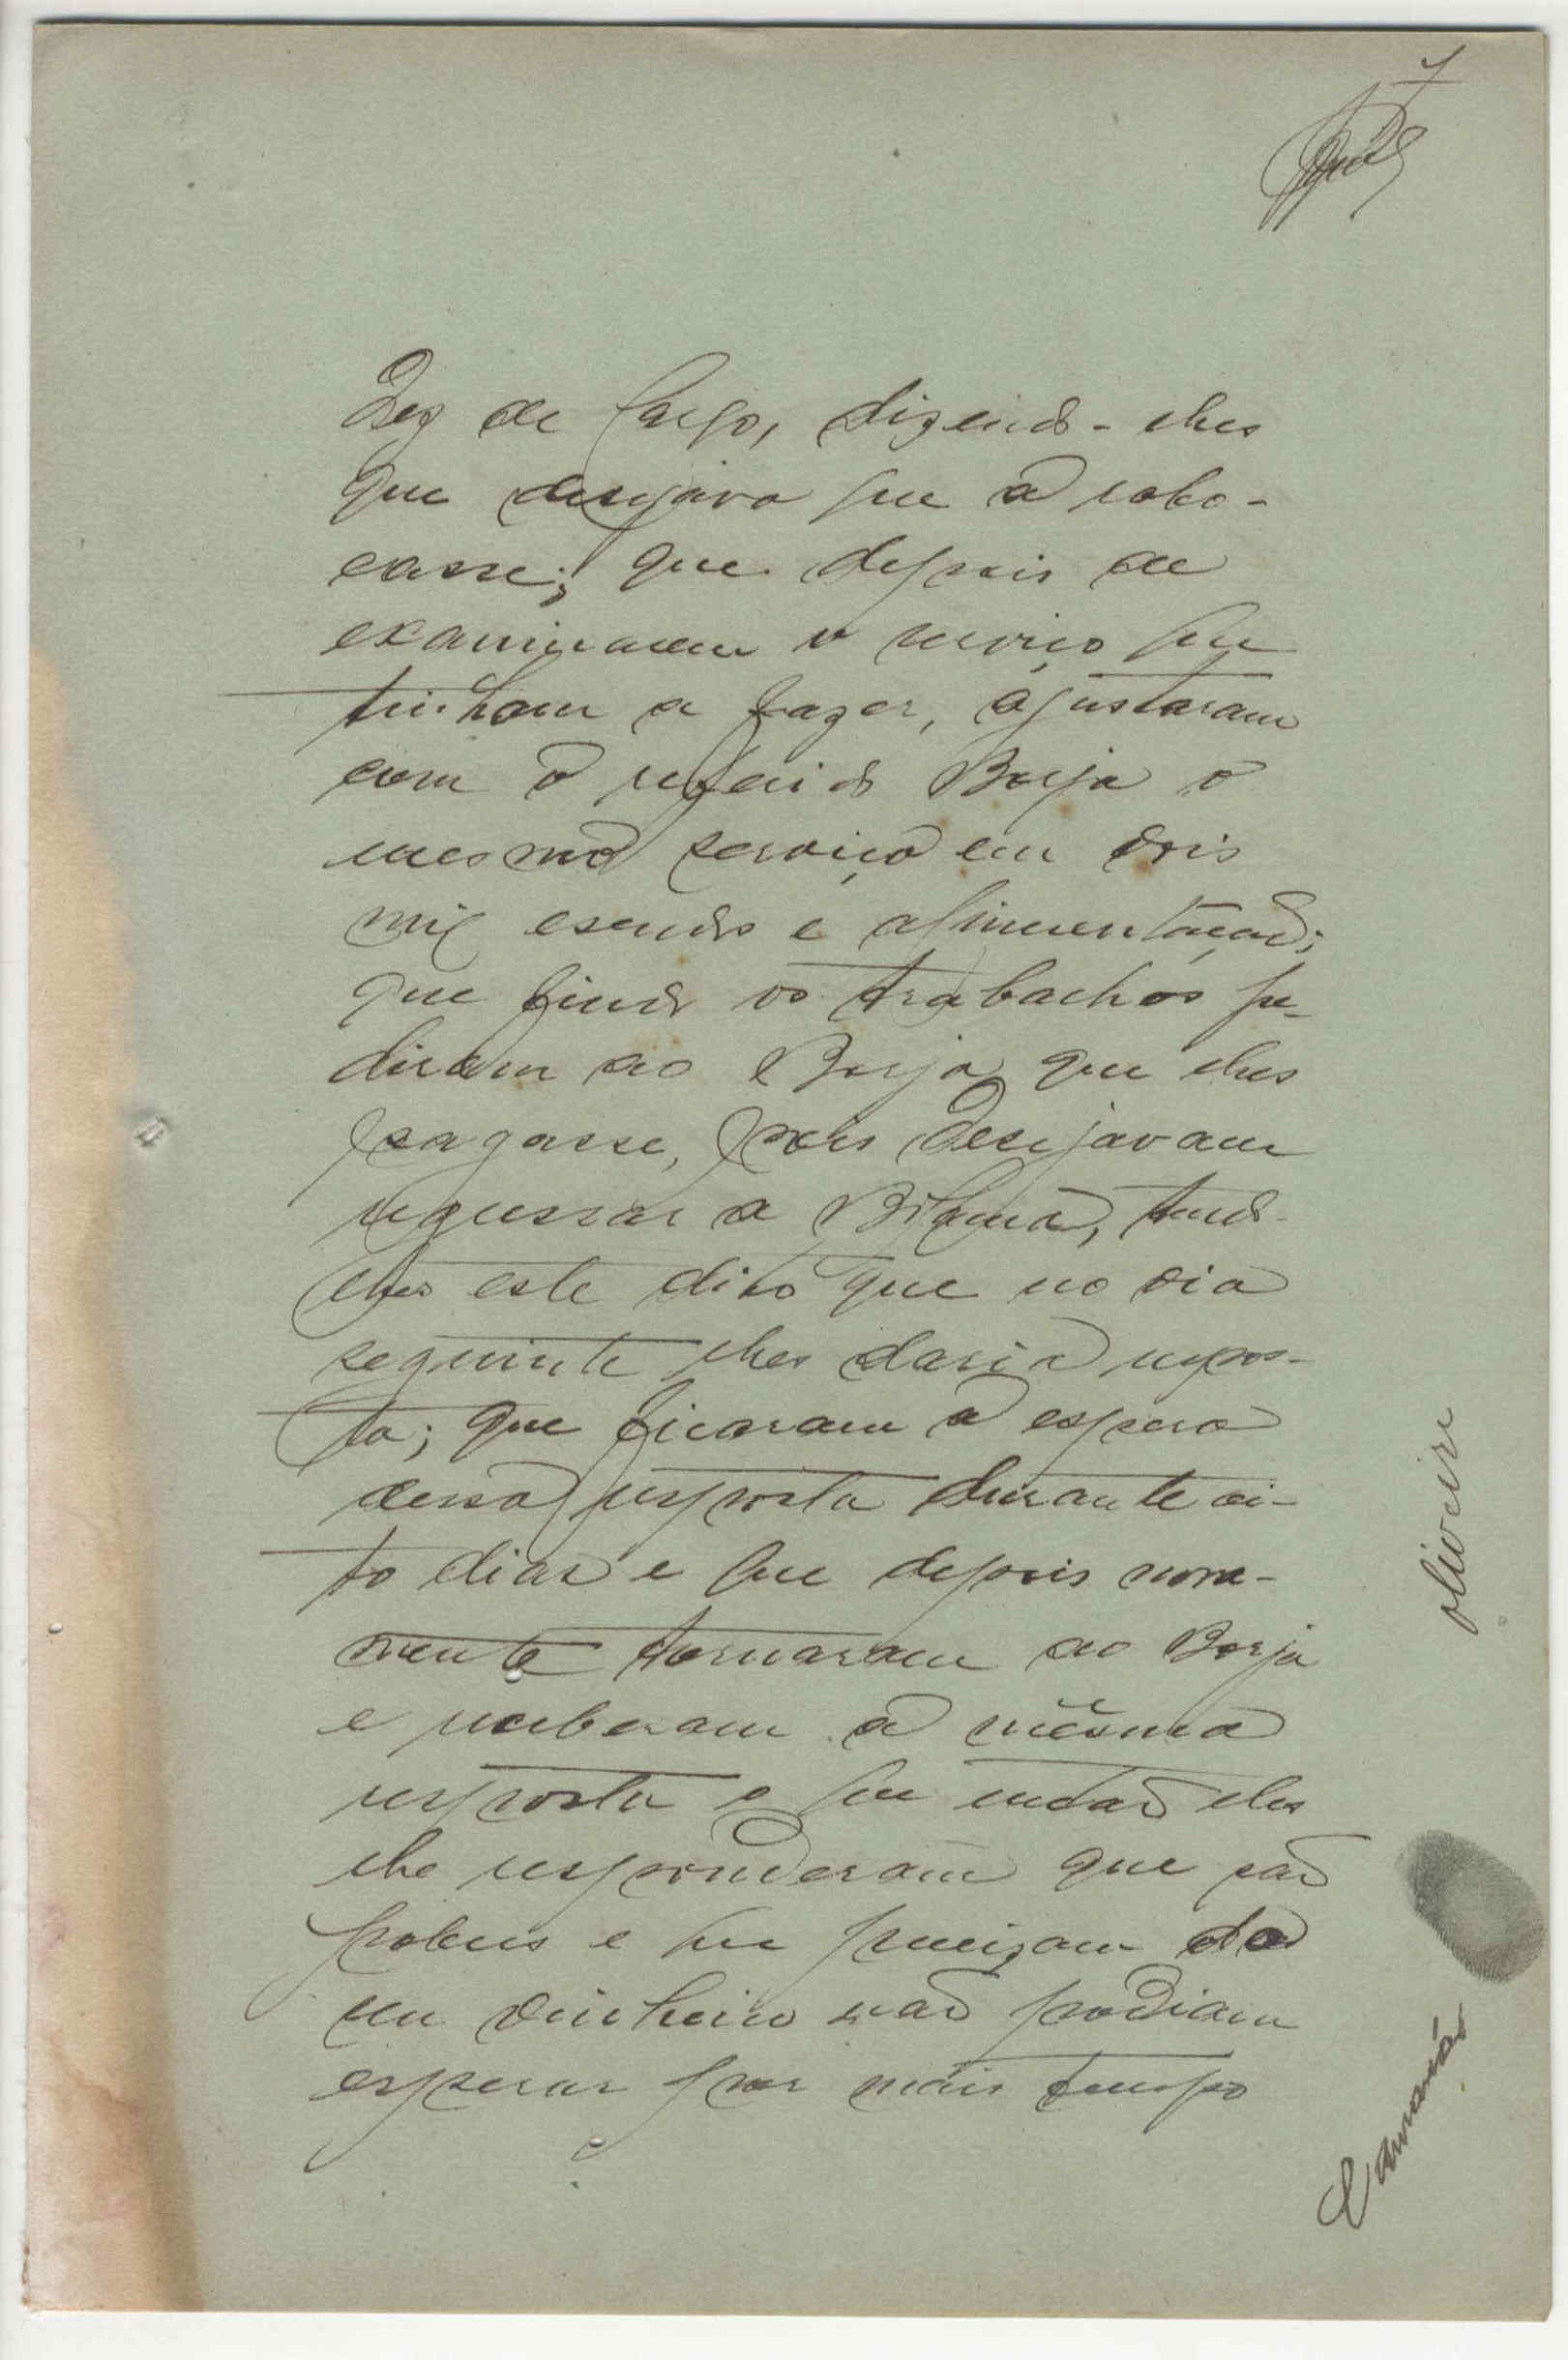 dez de largo, dizendo-lhes
que desejava que a rebo-
casse; que depois de
examinarem o serviço que
tinham a fazer, ajustaram
com o referido Borja o
mesmo serviço em dois
mil escudos e alimentação;
que findo os trabalhos pe-
diram ao Borja que lhes
pagasse, pois desejavam
regressar a Bilama, tendo-
lhes este dito que no dia
seguinte lhes daria respos-
ta; que ficaram a espera
dessa resposta durante oi-
to dias e que depois nova-
mente tornaram ao Borja
e receberam a mesma
resposta e que então eles
lhe responderam que são
pobres e que precizam do
seu dinheiro não podiam
esperar por mais tempo
oliveira